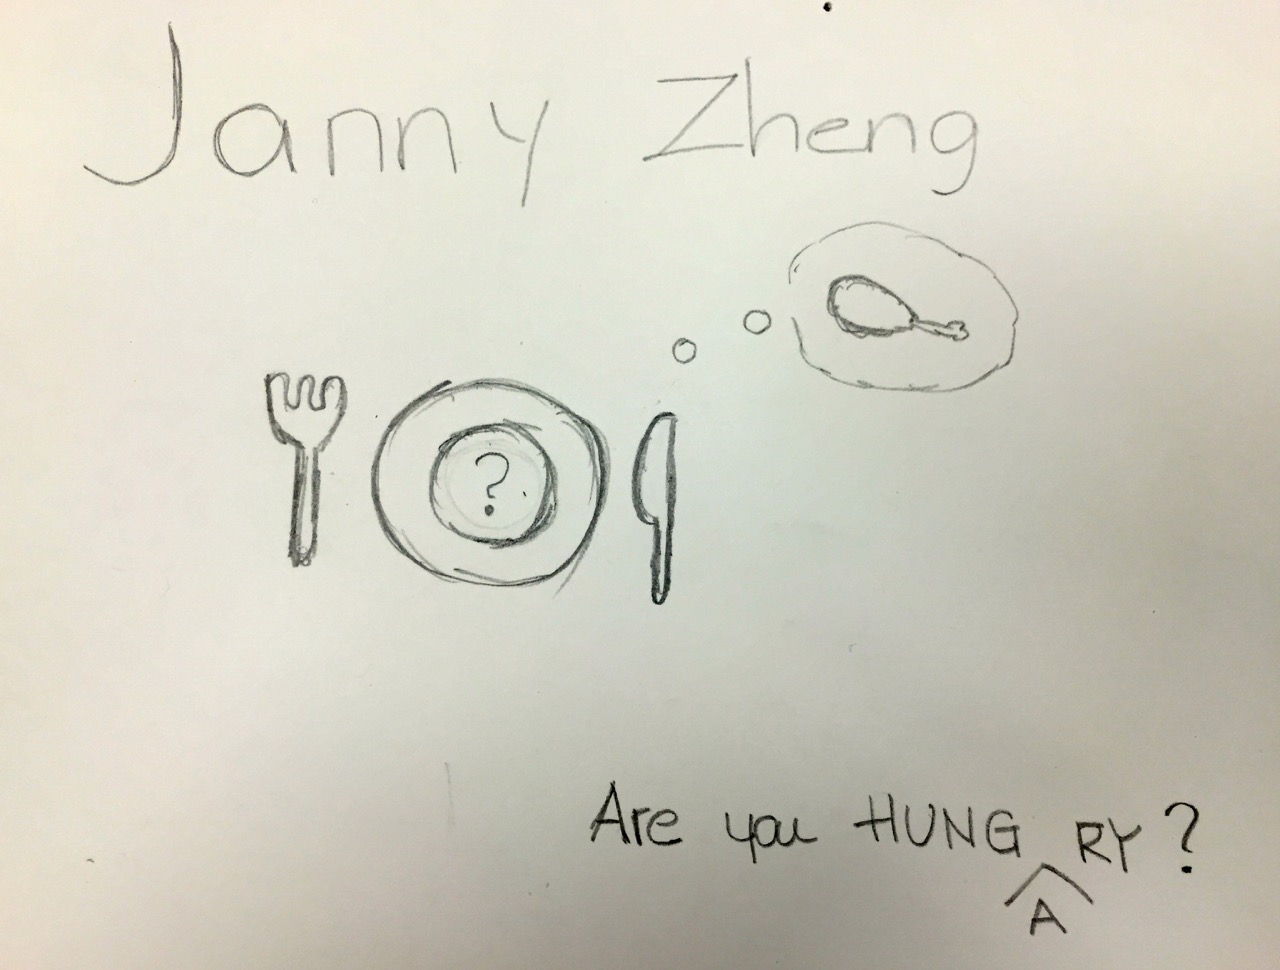 Janny Zheng
?
Are you HUNG RY ?
A